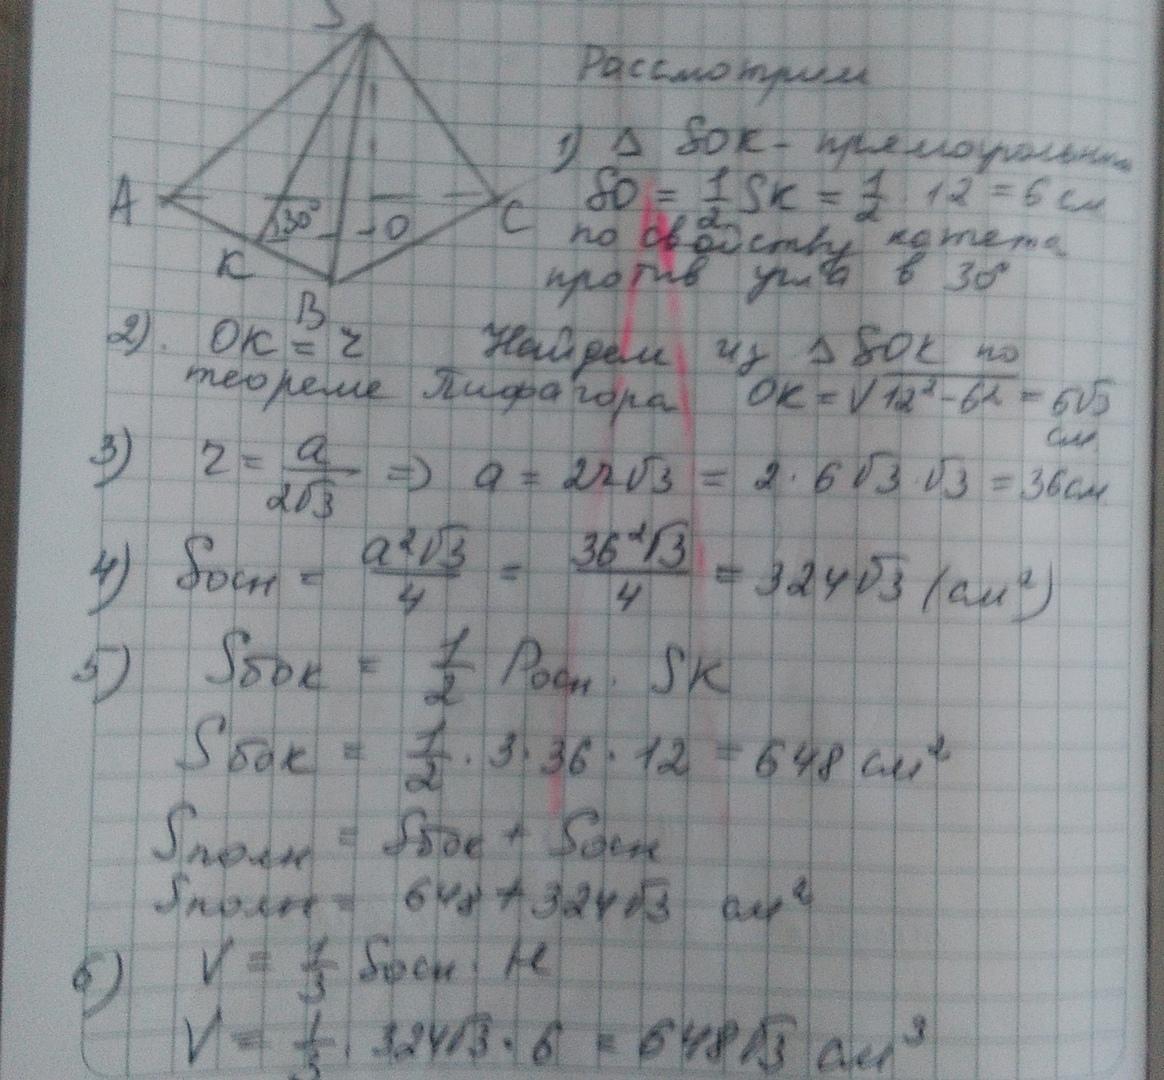 S
Рассмотрим
A
30°
O
C
K
B
1) Δ SOK - прямоугольный
SO = 1/2 SK = 1/2 · 12 = 6 см
по свойству катета
против угла в 30°
2). OK = r Найдем из Δ SOK по
теореме Пифагора OK = √12² - 6² = 6√3
см.
3) r = a/2√3 => a = 2r√3 = 2 · 6√3 · √3 = 36 см
4) Sосн = a²√3/4 = 36²√3/4 = 324√3 (см²)
5) Sбок = 1/2 Pосн · SK
Sбок = 1/2 · 3 · 36 · 12 = 648 см²
Sполн = Sбок + Sосн
Sполн = 648 + 324√3 см²
6) V = 1/3 Sосн · H
V = 1/3 · 324√3 · 6 = 648√3 см³